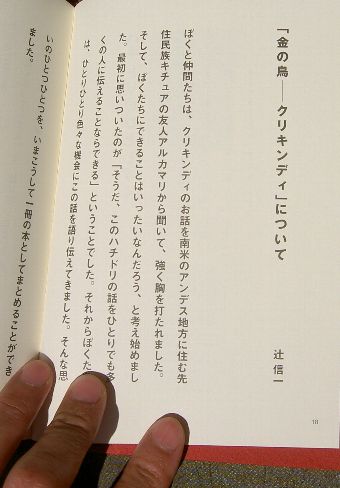 「金の鳥――クリキンディ」について
辻 信一
ぼくと仲間たちは、クリキンディのお話を南米のアンデス地方に住む先
住民族キチュアの友人アルカマリから聞いて、強く胸を打たれました。
そして、ぼくたちにできることはいったいなんだろう、と考え始めまし
た。最初に思いついたのが「そうだ、このハチドリの話をひとりでも多
くの人に伝えることならできる」ということでした。それからぼくた
は、ひとりひとり色々な機会にこの話を語り伝えてきました。そんな思
いのひとつひとつを、いまこうして一冊の本としてまとめることができ
ました。
18